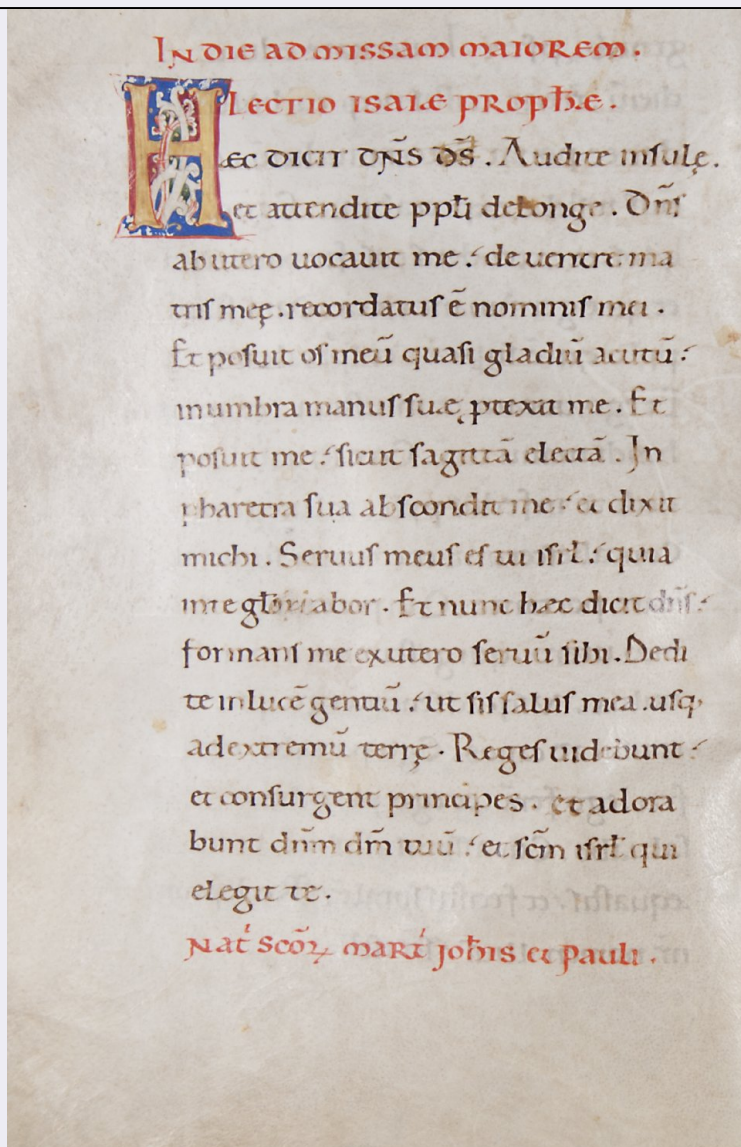 IN DIE AD MISSAM MAIOREM.
LECTIO ISAIAE PROPHE.
HÆC DICIT DN̄S D̄S. Audite insulę.
et attendite pp̄li delonge. Dn̄s
ab utero uocauit me: de uentre ma
tris meę. recordatus ē nominis mei.
Et posuit os meū quasi gladiū acutū:
in umbra manus suę ptexit me. Et
posuit me: sicut sagittā electā. In
pharetra sua abscondit me: et dixit
michi. Seruus meus es tu isrl̄: quia
in te gloriabor. Et nunc hæc dicit dn̄s:
formans me ex utero seruū sibi. Dedi
te in lucē gentiū: ut sis salus mea. usq;
ad extremū terrę. Reges uidebunt:
et consurgent principes. et adora
bunt dn̄m dm̄ tuū: et scm̄ isrl̄ qui
elegit te.
NAT̄ SCŌꝜ MART̄ Joh̄is et Pauli.